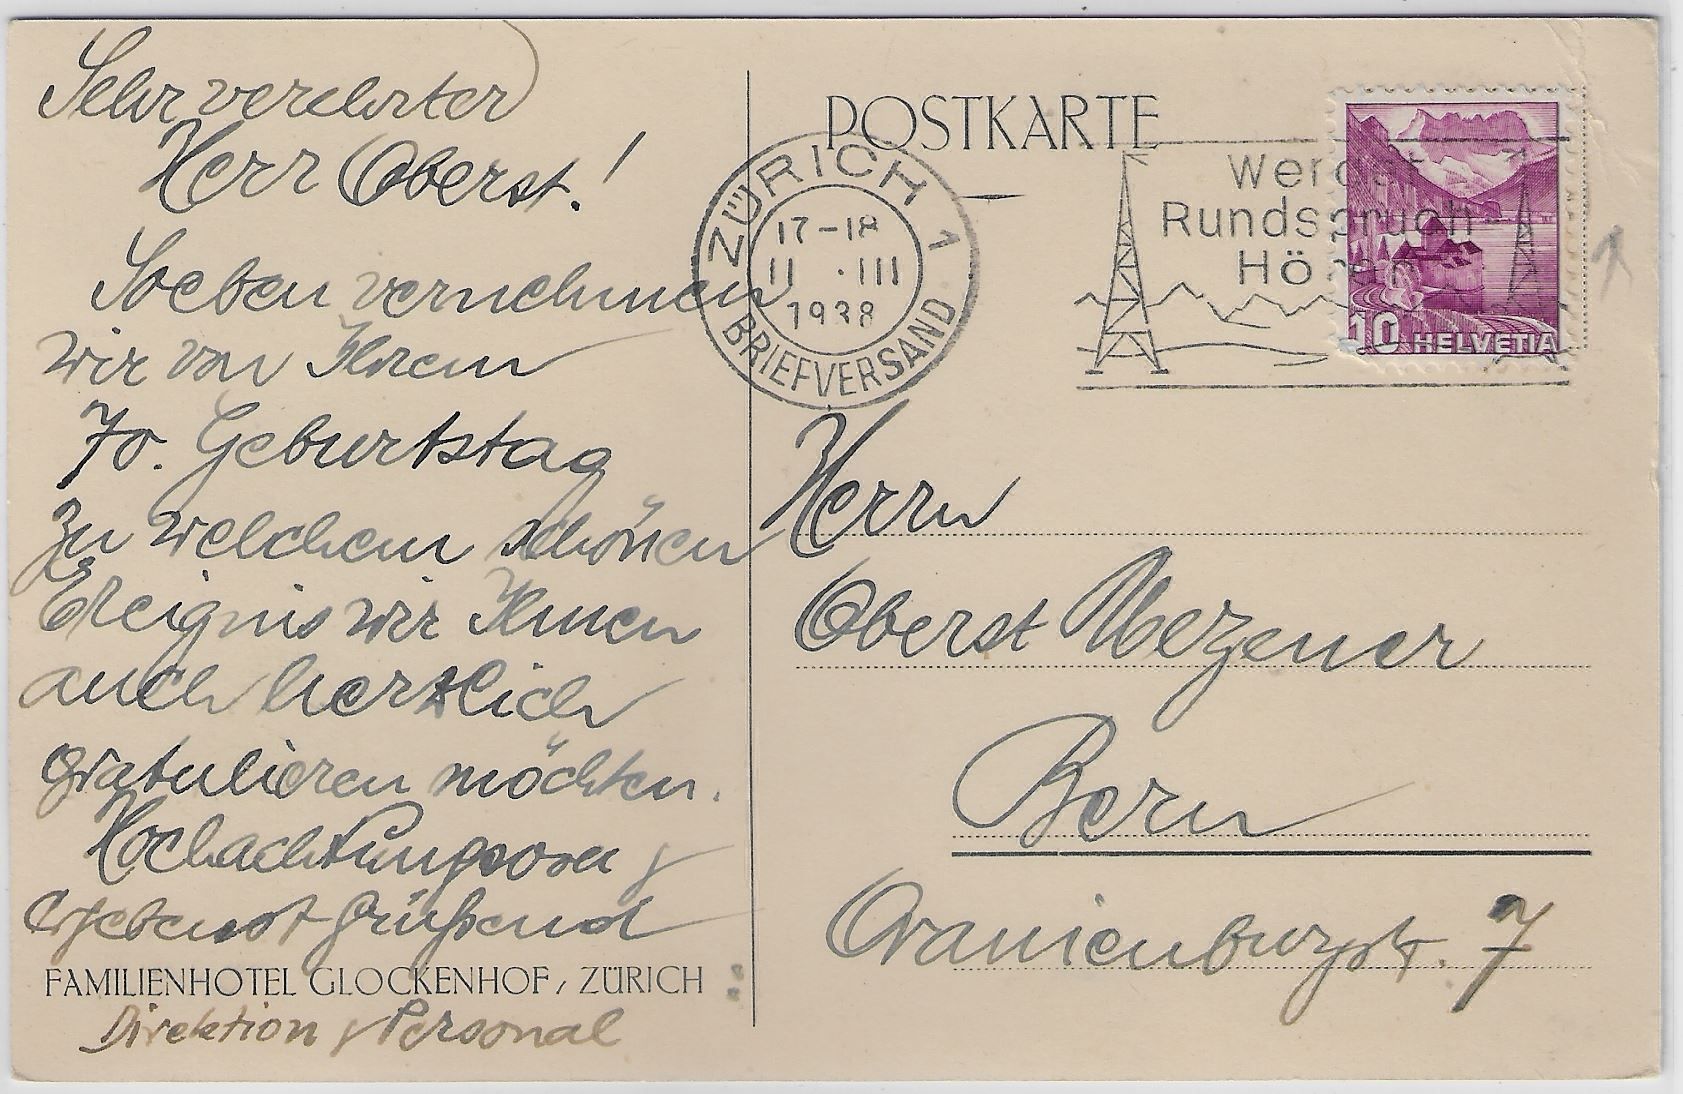 Sehr verehrter
Herr Oberst!
Soeben vernehmen
wir von Ihrem
70. Geburtstag
zu welchem schönen
Ereignis wir Ihnen
auch herzlich
gratulieren möchten.
Hochachtungsvoll &
ergebenst grüßend
FAMILIENHOTEL GLOCKENHOF, ZÜRICH :
Direktion & Personal
POSTKARTE
ZÜRICH 1
17-18
11 · III
1938
BRIEFVERSAND
Werdet
Rundspruch-
Hörer
10 HELVETIA
Herrn
Oberst
Bern
Oranienburgstr. 7